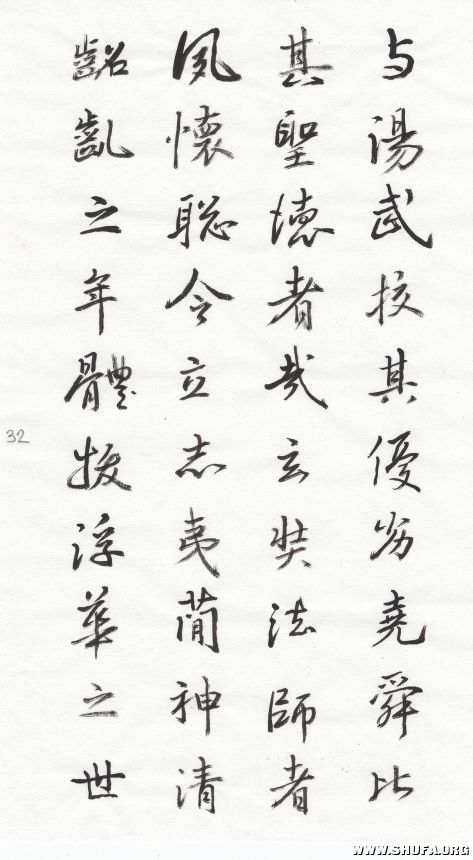 与湯武挍其優劣堯舜比
其聖德者哉玄奘法師者
夙懷聡令立志夷蕳神清
齠齓之年體拔浮華之世
32
WWW.SHUFA.ORG